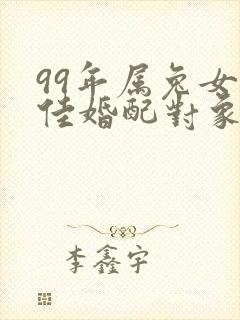 99年属兔女
佳婚配對象
李鑫宇